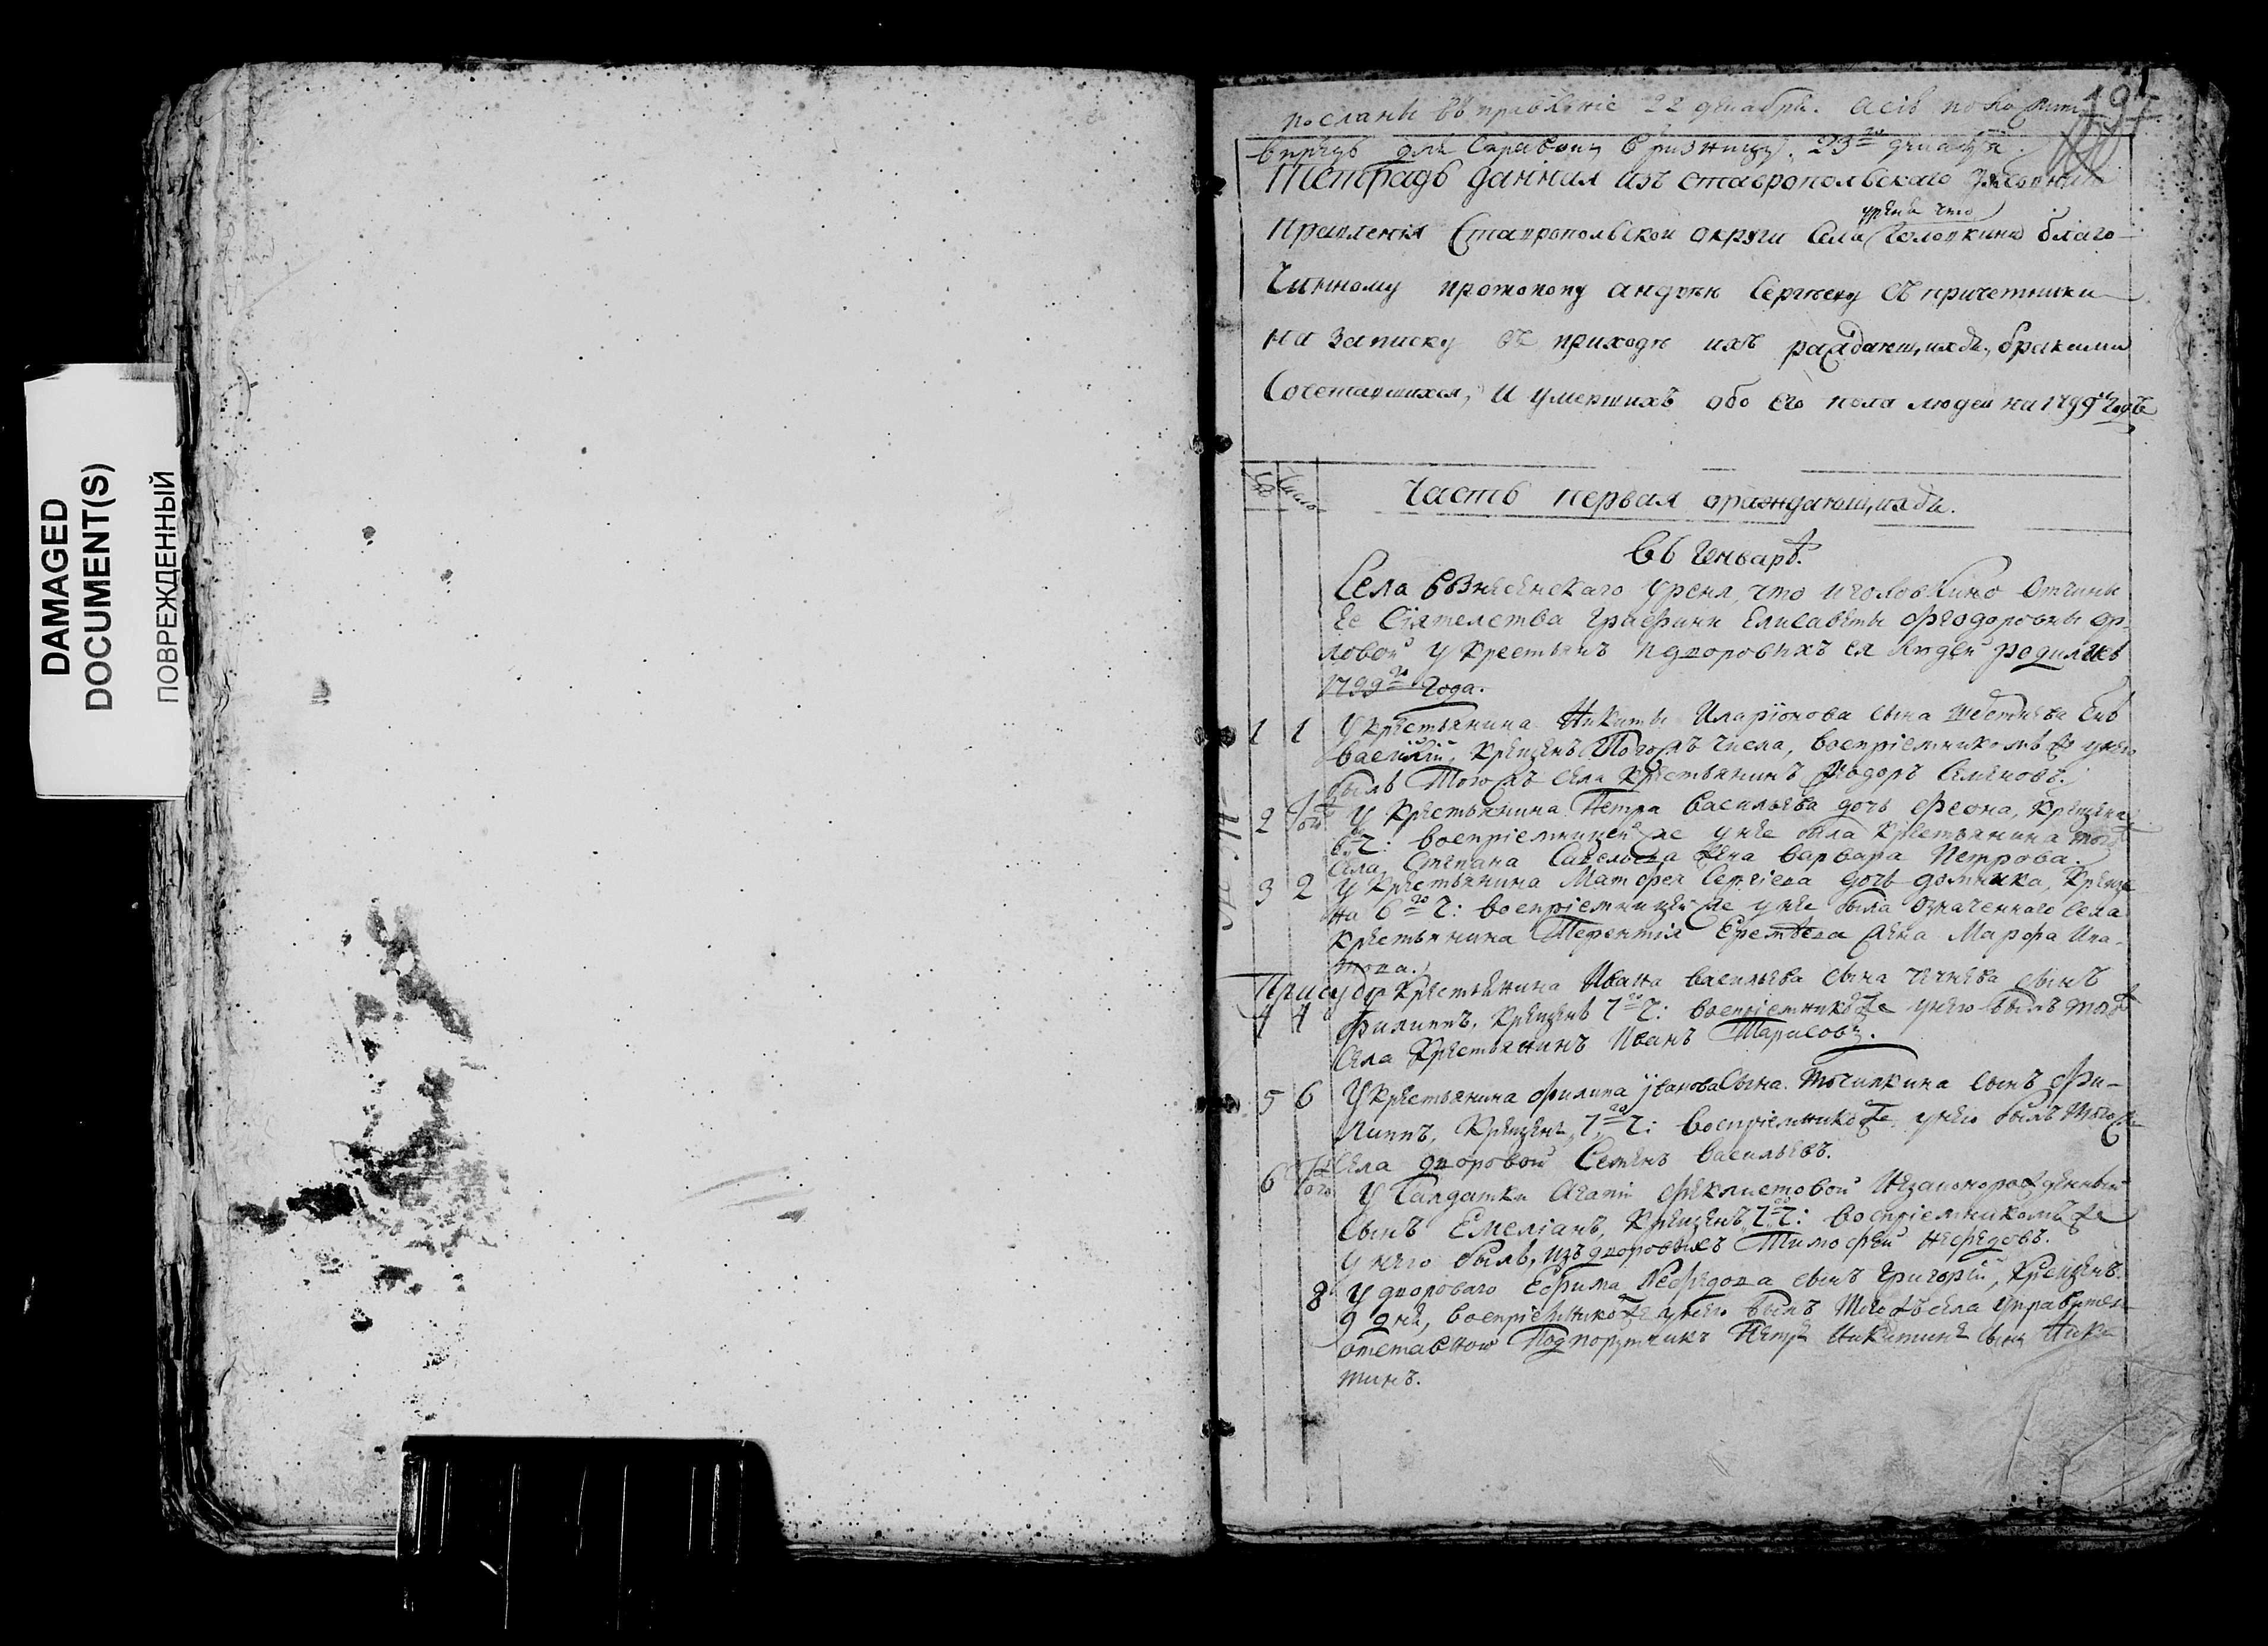 DAMAGED
DOCUMENT(S)
ПОВРЕЖДЕННЫЙ
посланы въ правленіе 22 декабря.
впредь для справокъ в ризницу. 23го декабря.
Тетрадь данная изъ ставропольскаго духовнаго
уреня что
Правленія Ставропольской округи села Головкина благо-
чинному протопопу андрею Сергѣеву съ причетники
на записку въ приходѣ ихъ раждающихся, бракомъ
Сочетавшихся, и умершихъ обоего пола людей на 1799й годъ
Число
Часть первая о раждающихся.
Въ Генварѣ.
Села Вознесенскаго Уреня, что и Головкино Отчины
Ее Сіятелства Графини Елисаветы Феодоровны Ор-
ловой у крестьянъ и дворовыхъ ея людей родились
1799го Года.
1 1 У крестьянина Никиты Иларіонова сына сынъ
Василій, крещенъ того жъ числа, воспріемникомъ же у него
былъ того жъ села крестьянинъ Феодоръ Семеновъ.
2 того У крестьянина Петра Васильева дочь Феона, крещена
6 ч: воспріемницей же у нее была крестьянина того
села Степана Савельева жена Варвара Петрова.
3 2 У крестьянина Матфея Сергіева дочь Домника, креще-
на 6го ч: воспріемницей же у нее была означеннаго села
крестьянина Терентія Еремѣева жена Марфа Ипа-
това.
У крестьянина Ивана Васильева сына сынъ
4 4 Филиппъ, крещенъ 7го ч: воспріемнико же у него былъ того
села крестьянинъ Иванъ Тарасовъ.
5 6 У крестьянина Филипа Иванова сына Точилкина сынъ Фи-
липпъ, крещенъ 7го ч: воспріемнико же у него былъ того ж
села дворовой Семенъ Васильевъ.
6 того У салдатки Агапіи Феклистовой незаконорожденный
сынъ Емеліанъ, крещенъ 7го ч: воспріемникомъ же
у него былъ, изъ дворовыхъ Тимофей Нефедовъ.
8 У двороваго Ефима Нефедова сынъ Григорій, крещенъ
9 дня, воспріемнико же у него былъ того жъ села управител
отставной Подпорутчикъ Петръ Никитинъ сынъ Ники-
тинъ.